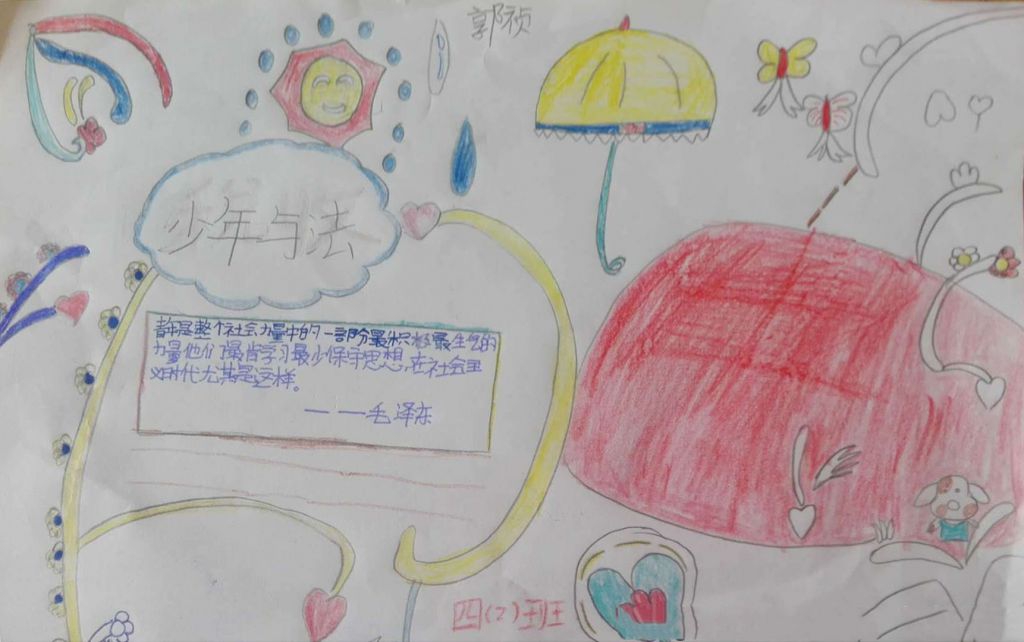 郭祯
少年与法
青年是整个社会力量中的一部分最积极最生气的
力量他们最肯学习最少保守思想,在社会主
义时代尤其是这样。
———毛泽东
四(2)班